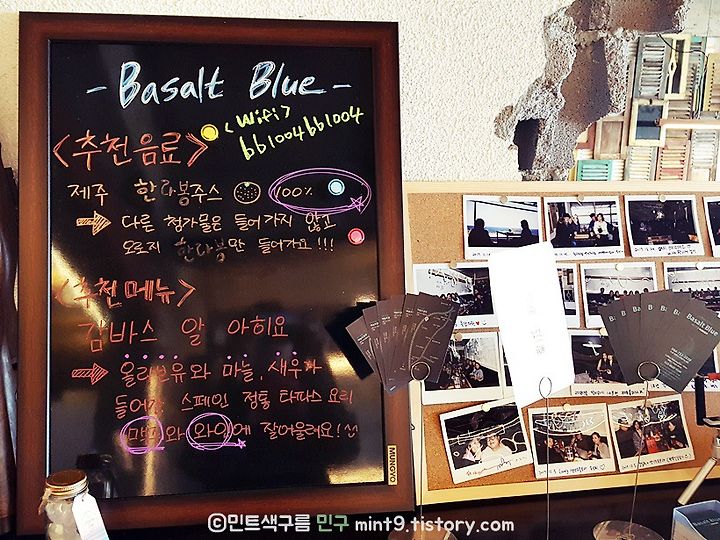 - Basalt Blue -
<Wifi>
bb1004bb1004
<추천음료>
제주 한라봉주스 100%
다른 첨가물은 들어가지 않고
오로지 한라봉만 들어가요!!!
<추천메뉴>
감바스 알 아히요
올리브유와 마늘, 새우가
들어간 스페인 정통 타파스 요리
맥주와 와인에 잘어울려요!
MUNGYO
Basalt Blue
©민트색구름 민구 mint9.tistory.com